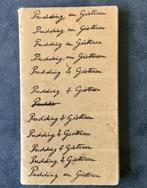 Pudding en Gisteren
Pudding en Gisteren
Pudding en Gisteren
Pudding en Gisteren
Pudding & Gisteren
Pudding & Gisteren
Pudding & Gisteren
Pudding & Gisteren
Pudding & Gisteren
Pudding & Gisteren
Pudding & Gisteren
Pudding en Gisteren